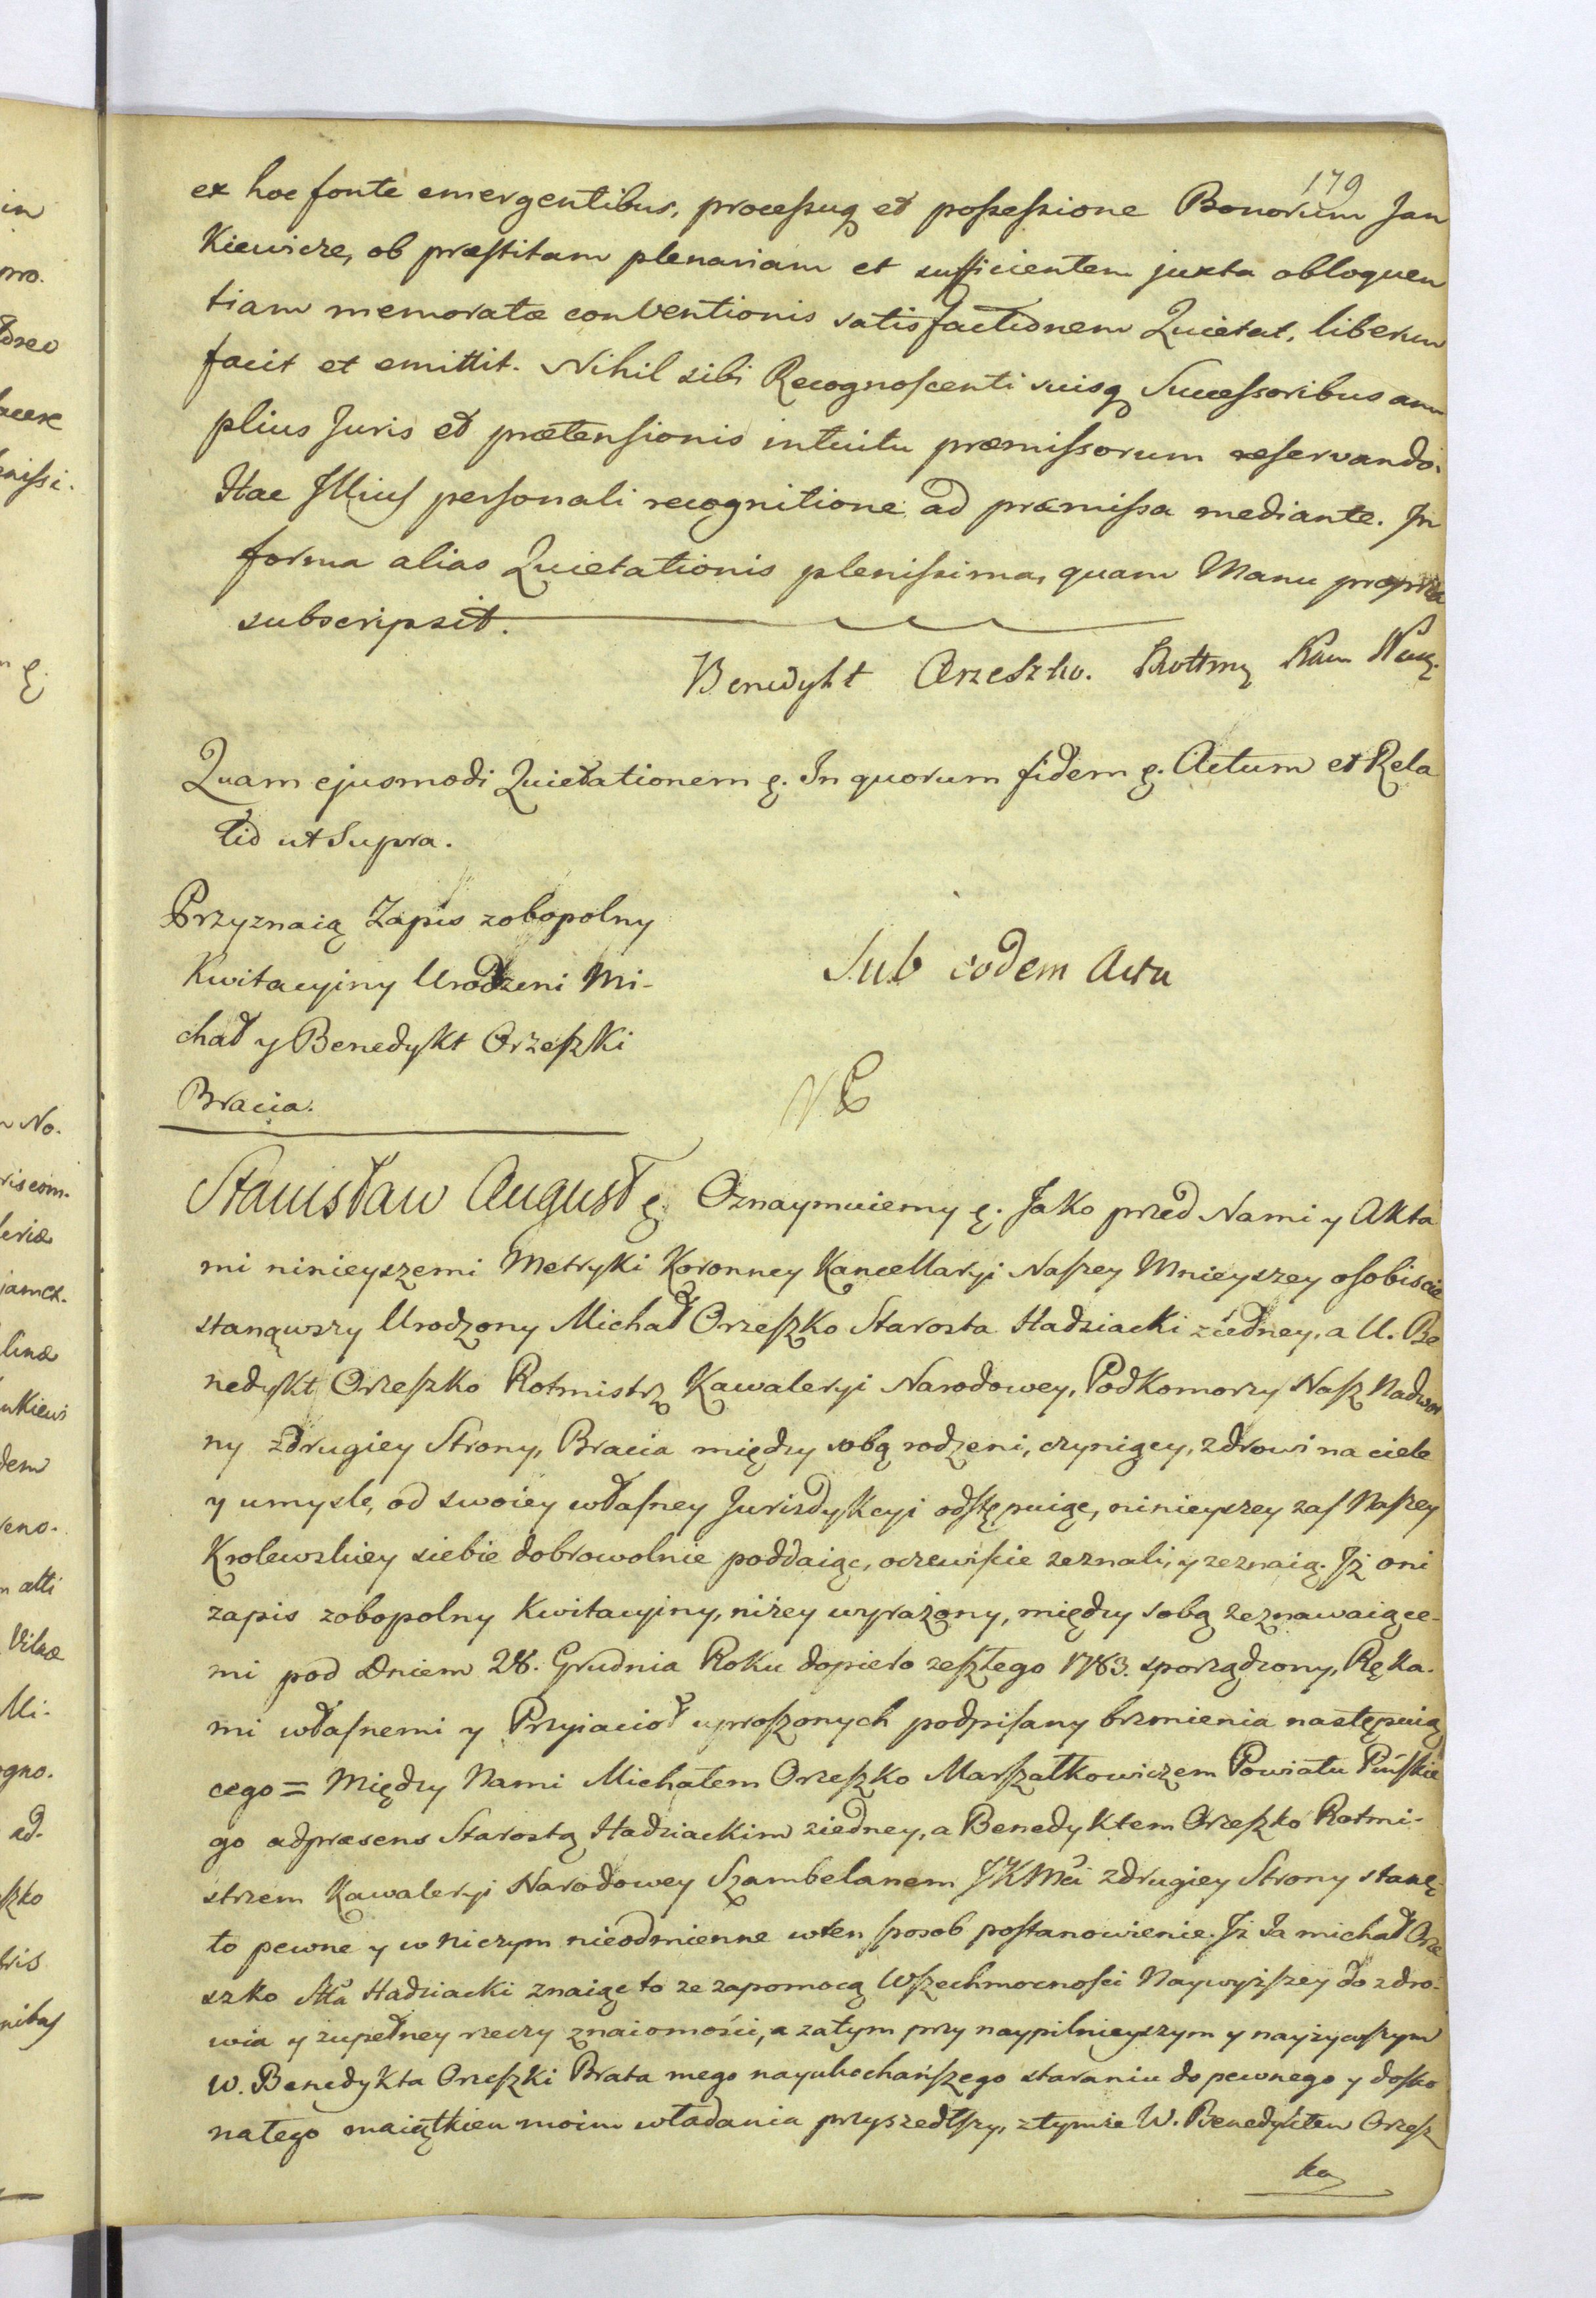 179
ex hoc fonte emergentibus, processuq et possessione Bonorum Jan
Kiewicze, ob præstitam plenariam et sufficientem juxta obloquen
tiam memoratæ conventionis satisfactionem Quietat, liberum
facit et emittit. Nihil sibi Recognoscenti suisq Successoribus am
plius Juris et prætensionis intuitu præmissorum reservando.
Hac Illius personali recognitione ad præmissa mediante. In
forma alias Quietationis plenissima, quam Manu propria
subscripsit.
Benedykt Orzeszko. Rottmz Kaw Nar.
Quam ejusmodi Quietationem ę. In quorum fidem ę. Actum et Rela
tio ut Supra.
Przyznaią Zapis zobopolny
Kwitacyiny Urodzeni Mi-
chał y Benedykt Orzeszki
Bracia.
Sub eodem Actu
Stanisław August ę. Oznaymuiemy ę. Jako przed Nami y Akta
mi ninieyszemi Metryki Koronney Kancellaryi Naszey Mnieyszey osobiscie
stanąwszy Urodzony Michał Orzeszko Starosta Hadziacki z iedney, a U. Be
nedykt Orzeszko Rotmistrz Kawaleryi Narodowey, Podkomorzy Nasz Nadwor
ny z drugiey Strony, Bracia między sobą rodzeni, czyniący, zdrowi na ciele
y umysle, od swoiey własney Jurizdykcyi odstępuiąc, ninieyszey zas Naszey
Krolewskiey siebie dobrowolnie poddaiąc, oczewiscie zeznali, y zeznaią. Iż oni
zapis zobopolny Kwitacyiny, niżey wyrażony, między sobą zeznawaiące-
mi pod Dniem 28. Grudnia Roku dopiero zeszłego 1783. sporządzony, Ręka-
mi własnemi y Przyiacioł uproszonych podpisany brzmienia następuią
cego = Między Nami Michałem Orzeszko Marszałkowiczem Powiatu Pińskie
go adpræsens Starostą Hadziackim z iedney, a Benedyktem Orzeszko Rotmi-
strzem Kawaleryi Narodowey Szambelanem JKMci z drugiey Strony stanę-
to pewne y w niczym nieodmienne w ten sposob postanowienie. Iż Ja michał Orze
szko Stta Hadziacki znaiąc to ze zapomocą Wszechmocnosci Naywyższey do zdro-
wia y zupełney rzeczy znaiomości, a zatym przy naypilnieyszym y nayżywszym
W. Benedykta Orzeszki Brata mego nayukochańszego staraniu do pewnego y dosko
nałego maiątkiem moim władania przyszedłszy, z tymże W. Benedyktem Orzesz
ką